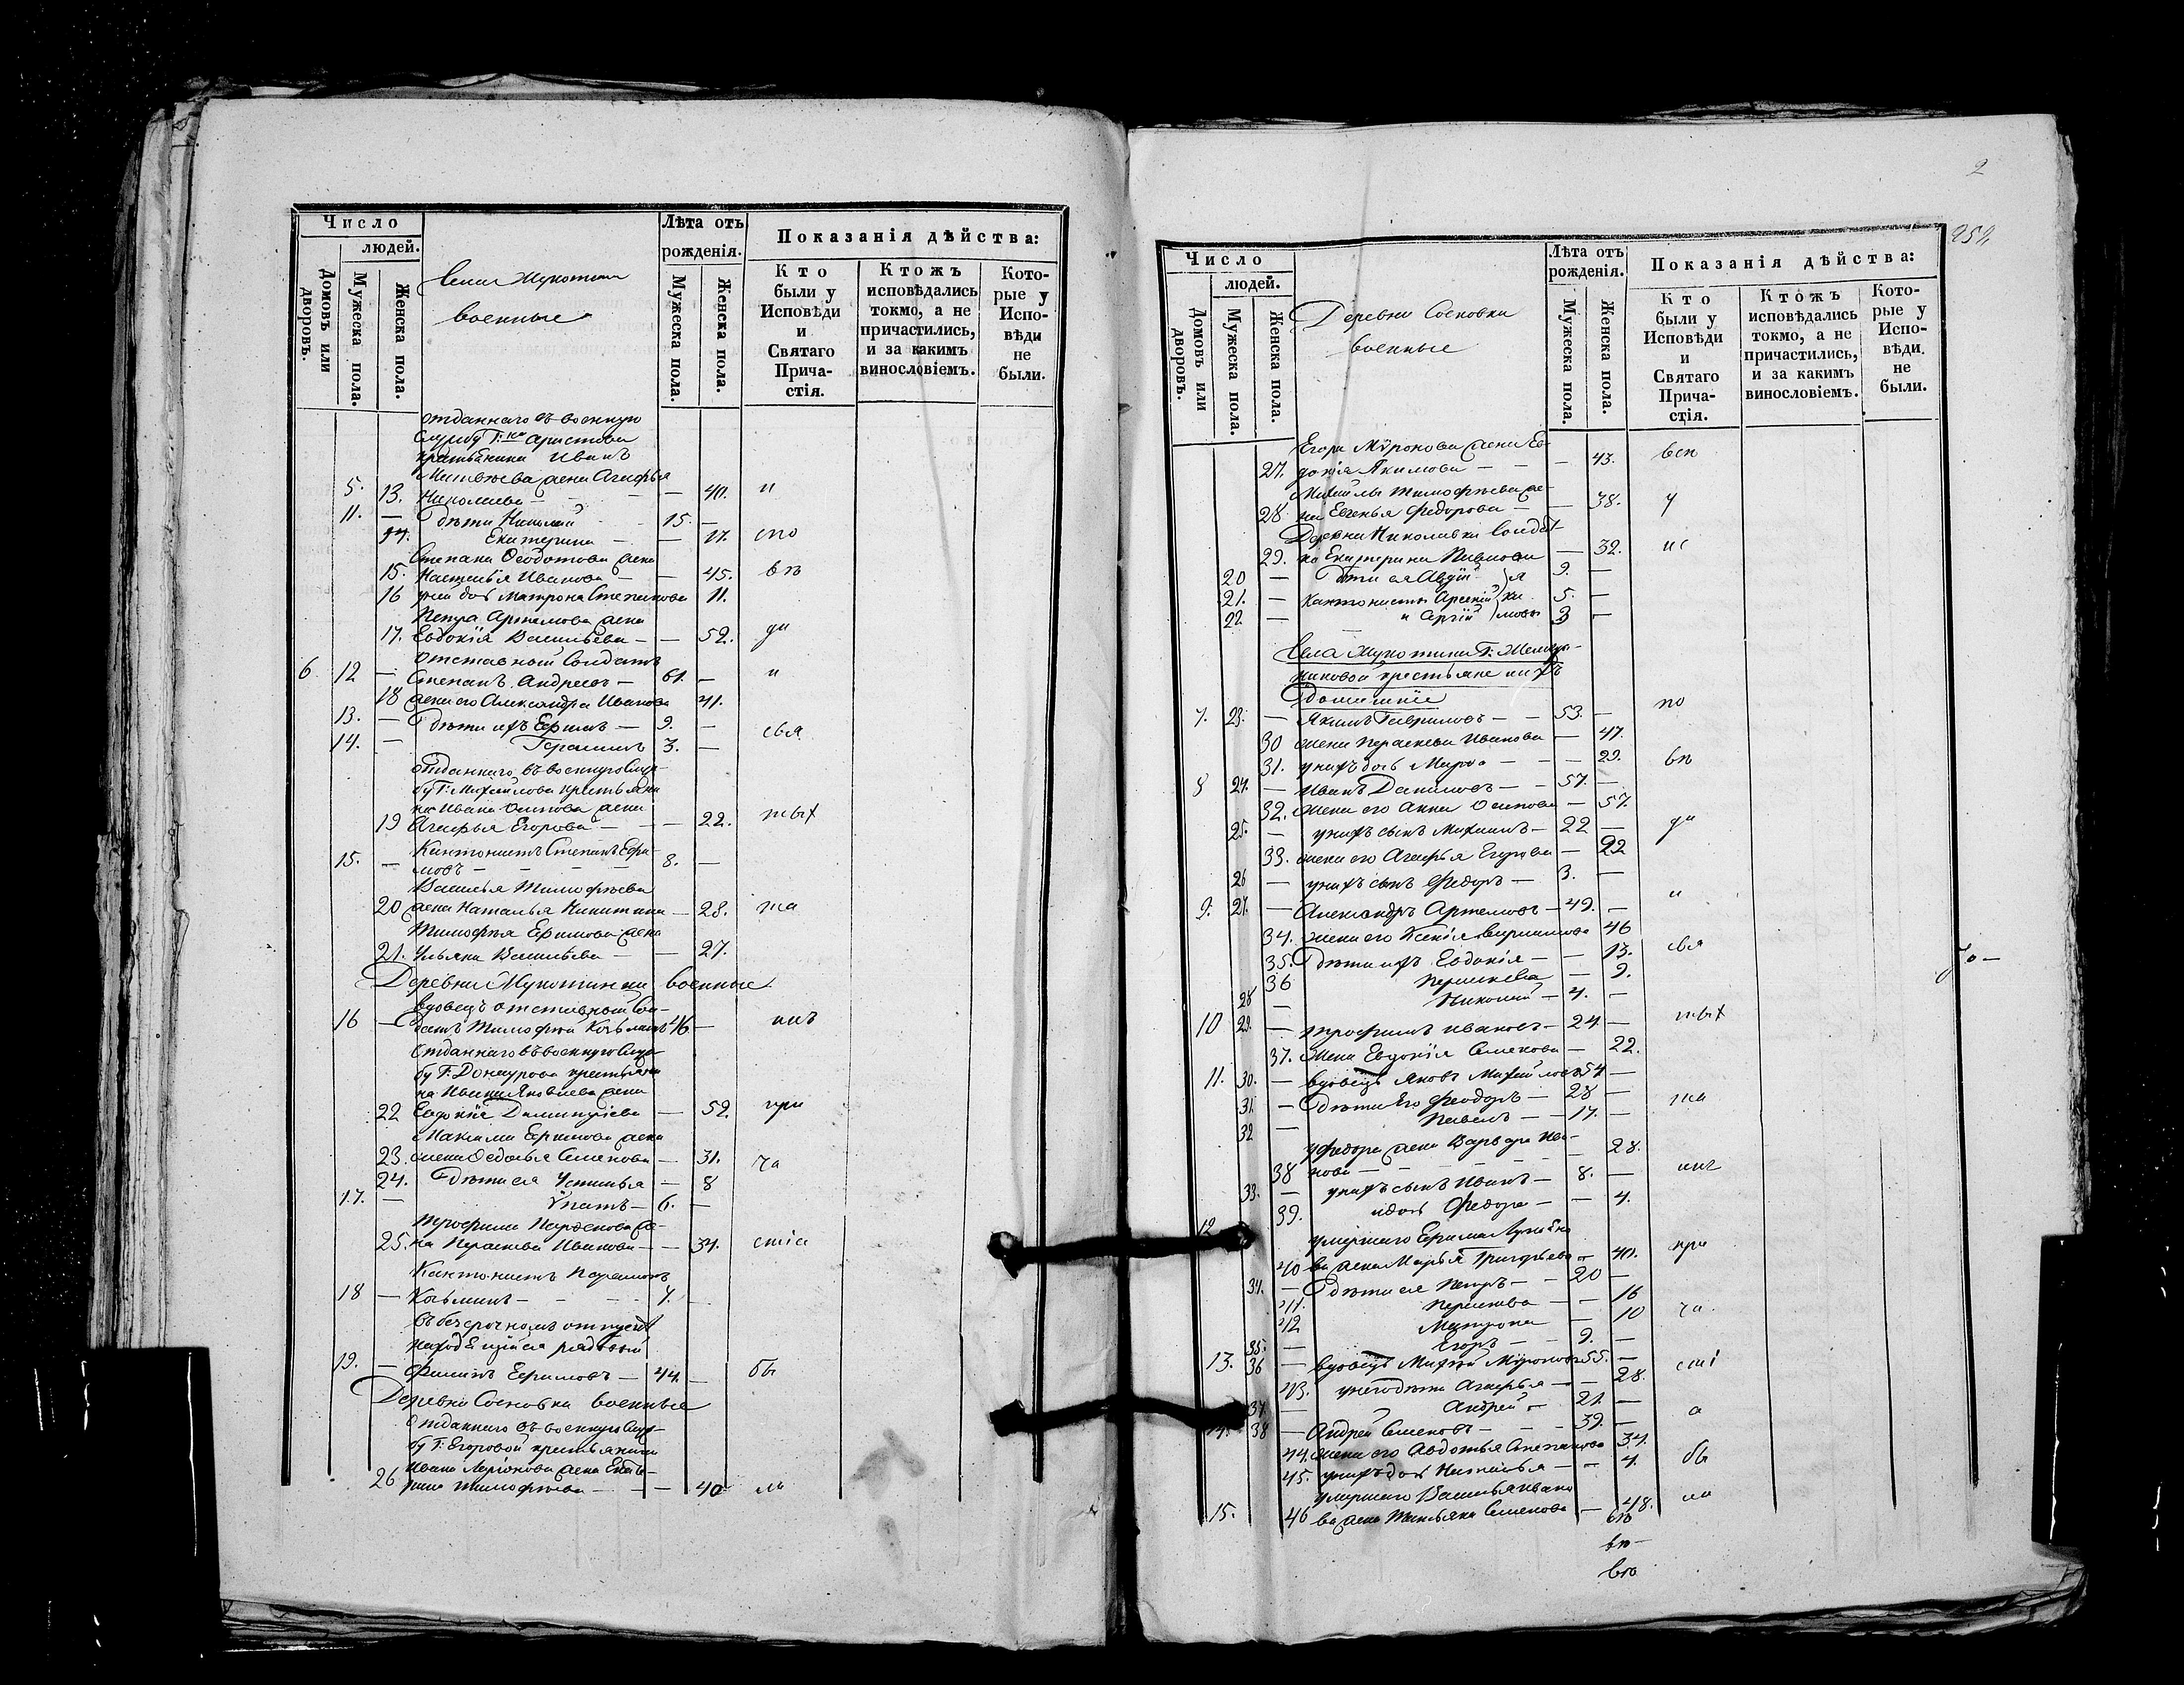 Число
людей.
Домовъ или дворовъ.
Мужеска пола.
Женска пола.
военные
Лѣта отъ рожденія.
Мужеска пола.
Женска пола.
Показанія дѣйства:
Кто были у Исповѣди и Святаго Причастія.
Ктожъ исповѣдались токмо, а не причастились, и за какимъ винословіемъ.
Которые у Исповѣди не были.
отданнаго въ военную
службу Г:на Аристова
крестьянина Ивана
Матвѣева жена Агафья
5. 13. Николаева — — 40. и
11. — Дѣти Николай 15. —
14. Екатерина — — 17. спо
Степана Ѳеодотова жена
15. Настасья Иванова — — 45. вѣ
16 у ней дочь Матрона Степанова 11.
Петра Артемова жена
17. Евдокія Васильева — — 52. ди
отставной Солдатъ
6 12 — Степанъ Андреевъ — 61. — и
18 жена его Александра Иванова 41.
13. — Дѣти ихъ Ефимъ — 9. —
14. — Герасимъ 3. — свя
отданнаго въ военную служ-
бу Г: Михайлова крестьяни
на Ивана Осипова жена
19 Агафья Егорова — — — 22. тых
Кантонистъ Степанъ Ефи-
15. — мовъ — — — 8. —
Василья Тимофѣева
20 жена Наталья Никитина — 28. та
Тимофѣя Ефимова жена
21. Ульяна Васильева — — 27.
Деревни Мукотинки военные
вдовецъ отставной Сол-
16 — датъ Тимофей Козьминъ 46 — инъ
Отданнаго въ военную служ
бу Г: Донаурова крестьяни
на Ивана Яковлева жена
22 Евдокія Димитріева — 52. при
Максима Ефимова жена
23. жена Ѳедосья Семенова — 31. ча
24. Дѣти ея Устинья — 8
17. — Ѵпатъ — 6. —
Трофима Парфенова же-
25. на Парасковья Иванова — — 34. стіа
Кантонистъ Парамонъ
18 — Козьминъ — — — 7. —
въ безсрочномъ отпускѣ
находящійся рядовый
19. — Филипъ Ефимовъ — 44. — бы
Деревни Сосновки военные
Отданнаго въ военную служ-
бу Г: Егоровой крестьянина
Ивана Ларіонова жена Екате-
26 рина Тимофѣева — — — 40 ли
2
252
Число
людей.
Домовъ или дворовъ.
Мужеска пола.
Женска пола.
Деревни Сосновки
военные
Лѣта отъ рожденія.
Мужеска пола.
Женска пола.
Показанія дѣйства:
Кто были у Исповѣди и Святаго Причастія.
Ктожъ исповѣдались токмо, а не причастились, и за какимъ винословіемъ.
Которые у Исповѣди не были.
Егора Мѵронова жена Ев-
27. докія Якимова — — — 43. всѣ
Михайлы Тимофѣева же-
28 на Евгенья Федорова — — 38. у
Деревни Николавки Солдат-
29. ка Екатерина Павлова — 32. ис
20 — Дѣти ея Авдій 9. —
21. — Кантонисты Арсеній 5. —
22. — и Сергій 3 —
Села Мукотина Г: 
никовой крестьяне ихъ
Домашніе по
7. 23. — Якимъ Гавриловъ — — 53. —
30 жена Парасковья Иванова — 47.
31. у нихъ дочь Марѳа — — — 29. вѣ
8 24. — Иванъ Даниловъ — — 57. —
32. Жена его Анна Осипова — 57.
25. — у нихъ сынъ Михаилъ — 22 — ди
33. жена его Агафья Егорова — 22
26 — у нихъ сынъ Федоръ — 3. —
9. 27. — Александръ Артемовъ — 49. — и
34. жена его Ксенія 46
35. Дѣти ихъ Евдокія — — 13. свя
36 Парасковья — 9.
28 — Николай — 4. —
10 29. — Трофимъ Ивановъ — 24. — тых
37. Жена Евдокія Семенова — 22.
11. 30. — вдовецъ Яковъ Михайловъ 54 —
31 — Дѣти Его Феодоръ — 28 — та
32 — Павелъ — — 17. —
у Федора жена Варвара Ива-
38 нова — — — — 28.
33. — у нихъ сынъ Иванъ — 8. — инъ
39. и дочь Федора — — 4.
12 умершаго Ефима Лукьяно
40 ва жена Марья Григорьева — 40. при
34. — Дѣти ея Петръ — — 20 —
41. Парасковья — — 16
42 Матрона — 10 ча
35. — Егоръ — — 9. —
13. 36 — вдовецъ Михей Мѵроновъ 55. — сті
43. у него дѣти Агафья — — 28.
37. — Андрей — 21. —
14. 38 — Андрей Семеновъ — — 39. — а
44. жена его Авдотья Степанова 34.
45. у нихъ дочь Наталья — — 4. бы
умершаго Василья Ивано
15. 46 ва жена Татьяна Семенова — 48. ли